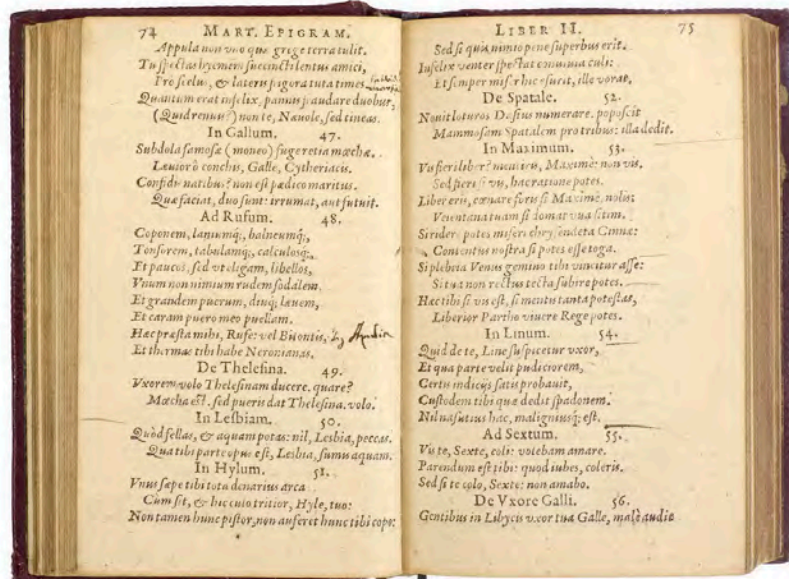 74 MART. EPIGRAM.
Appula non vno quæ grege terra tulit.
Tu spectas hyemem succincti lentus amici,
Pro scelus, & lateris frigora tuta times.
Quantum erat infelix, pannis fraudare duobus,
(Quid renuis?) non te, Næuole, sed tineas.
In Gallum. 47.
Subdola famosæ (moneo) fuge retia mœchæ.
Læuior ô conchis, Galle, Cytheriacis.
Confidis natibus? non est pædico maritus.
Quæ faciat, duo sunt: irrumat, aut futuit.
Ad Rufum. 48.
Coponem, laniumq;, balneumq;,
Tonsorem, tabulamq;, calculosq;,
Et paucos, sed vt elegam, libellos,
Vnum non nimium rudem sodalem,
Et grandem puerum, diuq; læuem,
Et caram puero meo puellam.
Hæc præsta mihi, Rufe: vel Bitontis,
Et thermas tibi habe Neronianas.
De Thelesina. 49.
Vxorem volo Thelesinam ducere. quare?
Mœcha est. sed pueris dat Thelesina. volo.
In Lesbiam. 50.
Quòd fellas, & aquam potas: nil, Lesbia, peccas.
Qua tibi parte opus est, Lesbia, sumis aquam.
In Hylum. 51.
Vnus sæpe tibi tota denarius arca
Cùm sit, & hic culo tritior, Hyle, tuo:
Non tamen hunc pistor, non auferet hunc tibi copo:
LIBER II. 75
Sed si quis nimio pene superbus erit.
Infelix venter spectat conuiuia culi:
Et semper miser hic esurit, ille vorat.
De Spatale. 52.
Nouit loturos Dasius numerare. poposcit
Mammosam Spatalem pro tribus: illa dedit.
In Maximum. 53.
Vis fieri liber? mentiris, Maxime: non vis.
Sed fieri si vis, hac ratione potes.
Liber eris, cœnare foris si Maxime, nolis:
Veientana tuam si domat vua sitim.
Si ridere potes miseri chrysendeta Cinnæ:
Contentus nostra si potes esse toga.
Si plebeia Venus gemino tibi vincitur asse:
Si tua non rectus tecta subire potes.
Hæc tibi si vis est, si mentis tanta potestas,
Liberior Partho viuere Rege potes.
In Linum. 54.
Quid de te, Line suspicetur vxor,
Et qua parte velit pudiciorem,
Certis indicijs satis probauit,
Custodem tibi quæ dedit spadonem.
Nil nasutius hac, maligniusq; est.
Ad Sextum. 55.
Vis te, Sexte, coli: volebam amare.
Parendum est tibi: quod iubes, coleris.
Sed si te colo, Sexte: non amabo.
De Vxore Galli. 56.
Gentibus in Libycis vxor tua Galle, malè audit